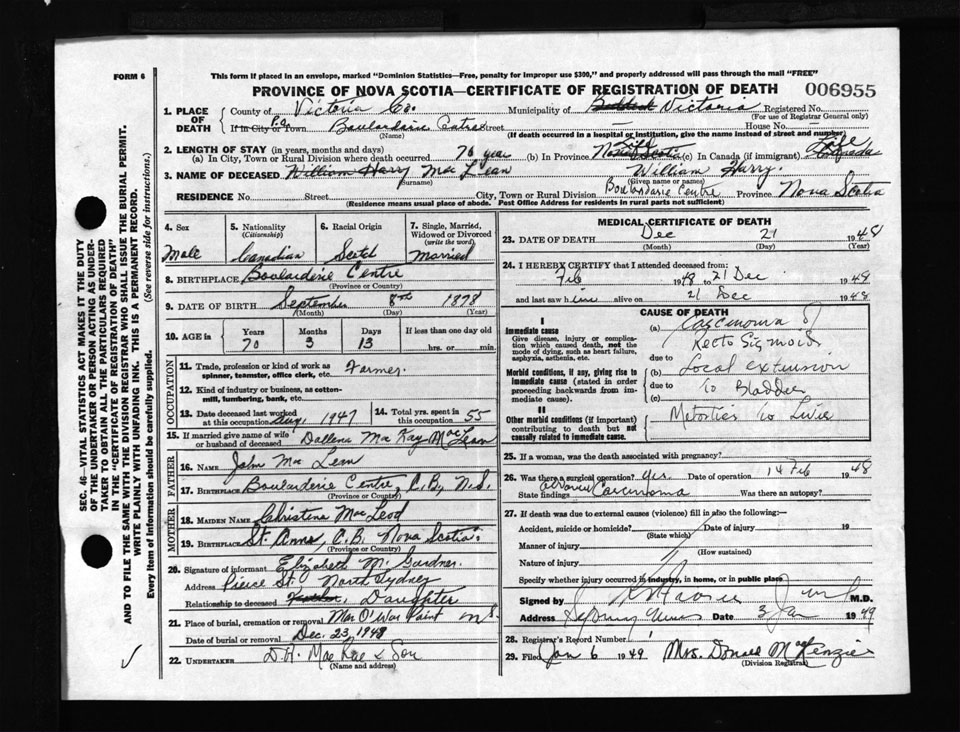 FORM 6
This form if placed in an envelope, marked "Dominion Statistics—Free, penalty for improper use $300," and properly addressed will pass through the mail "FREE"
PROVINCE OF NOVA SCOTIA—CERTIFICATE OF REGISTRATION OF DEATH
006955
1. PLACE OF DEATH
County of Victoria Co. Municipality of Baddeck Victoria Registered No.
(For use of Registrar General only)
If in City or Town P.O. Boularderie Centre Street — House No. —
(Name) (If death occurred in a hospital or institution, give the name instead of street and number)
2. LENGTH OF STAY (in years, months and days)
(a) In City, Town or Rural Division where death occurred 70 year (b) In Province Nova Scotia Life (c) In Canada (if immigrant) Canada Life
3. NAME OF DECEASED William Harry Mac Lean William Harry.
(Surname) (Given name or names)
RESIDENCE No. Street City, Town or Rural Division Boulardarie Centre Province Nova Scotia
(Residence means usual place of abode. Post Office Address for residents in rural parts not sufficient)
4. Sex 5. Nationality (Citizenship) 6. Racial Origin 7. Single, Married, Widowed or Divorced (write the word)
Male Canadian Scotch Married
8. BIRTHPLACE Boularderie Centre
(Province or Country)
9. DATE OF BIRTH September 8th 1878
(Month) (Day) (Year)
10. AGE in Years Months Days If less than one day old
70 3 13 hrs. or min.
OCCUPATION
11. Trade, profession or kind of work as spinner, teamster, office clerk, etc. Farmer.
12. Kind of industry or business, as cotton-mill, lumbering, bank, etc.
13. Date deceased last worked at this occupation Aug. 1947 14. Total yrs. spent in this occupation 55
15. If married give name of wife or husband of deceased Dollena Mac Kay MacLean
FATHER
16. Name John Mac Lean
17. Birthplace Boularderie Centre, C.B, N.S.
(Province or Country)
MOTHER
18. Maiden Name Christena Mac Leod
19. Birthplace St. Anns, C.B. Nova Scotia.
(Province or Country)
20. Signature of informant Elizabeth M. Gardner.
Address Pierce St. North Sydney
Relationship to deceased Daughter
21. Place of burial, cremation or removal Man O'War Point N.S.
Date of burial or removal Dec. 23, 1948
22. UNDERTAKER D.A. Mac Rae & Son
(Name and address)
MEDICAL CERTIFICATE OF DEATH
23. DATE OF DEATH Dec 21 1948
(Month) (Day) (Year)
24. I HEREBY CERTIFY that I attended deceased from:
Feb 1948 to 21 Dec 1948
and last saw him alive on 21 Dec 1948
CAUSE OF DEATH
I
Immediate cause
Give disease, injury or complication which caused death, not the mode of dying, such as heart failure, asphyxia, asthenia, etc.
(a) Carcinoma of
Recto Sigmoid
due to
Morbid conditions, if any, giving rise to immediate cause (stated in order proceeding backwards from immediate cause).
(b) Local extension
due to to Bladder
(c)
II
Other morbid conditions (if important) contributing to death but not causally related to immediate cause.
to Liver
25. If a woman, was the death associated with pregnancy?
26. Was there a surgical operation? yes. Date of operation 14 Feb 1948
State findings Carcinoma Was there an autopsy?
27. If death was due to external causes (violence) fill in also the following:—
Accident, suicide or homicide? Date of injury 19
(State which)
Manner of injury
(How sustained)
Nature of injury
Specify whether injury occurred in industry, in home, or in public place
Signed by M.D.
Address Sydney Mines Date 3 Jan 1949
28. Registrar's Record Number 1
29. Filed Jan 6 1949 Mrs. Donald McKenzie
(Division Registrar)
SEC. 46—VITAL STATISTICS ACT MAKES IT THE DUTY OF THE UNDERTAKER OR PERSON ACTING AS UNDERTAKER TO OBTAIN ALL THE PARTICULARS REQUIRED IN THE "CERTIFICATE OF REGISTRATION OF DEATH" AND TO FILE THE SAME WITH THE DIVISION REGISTRAR WHO SHALL ISSUE THE BURIAL PERMIT.
WRITE PLAINLY WITH UNFADING INK. THIS IS A PERMANENT RECORD.
Every item of Information should be carefully supplied. (See reverse side for instructions.)